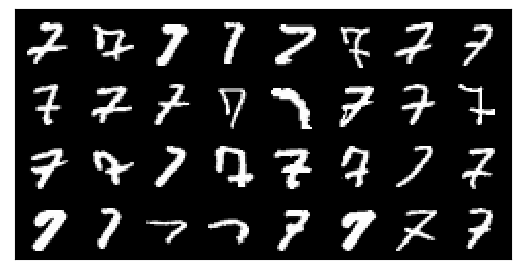 7 7 7 7 7 7 7 7
7 7 7 7 7 7 7 7
7 7 7 7 7 7 7 7
7 7 7 7 7 7 7 7